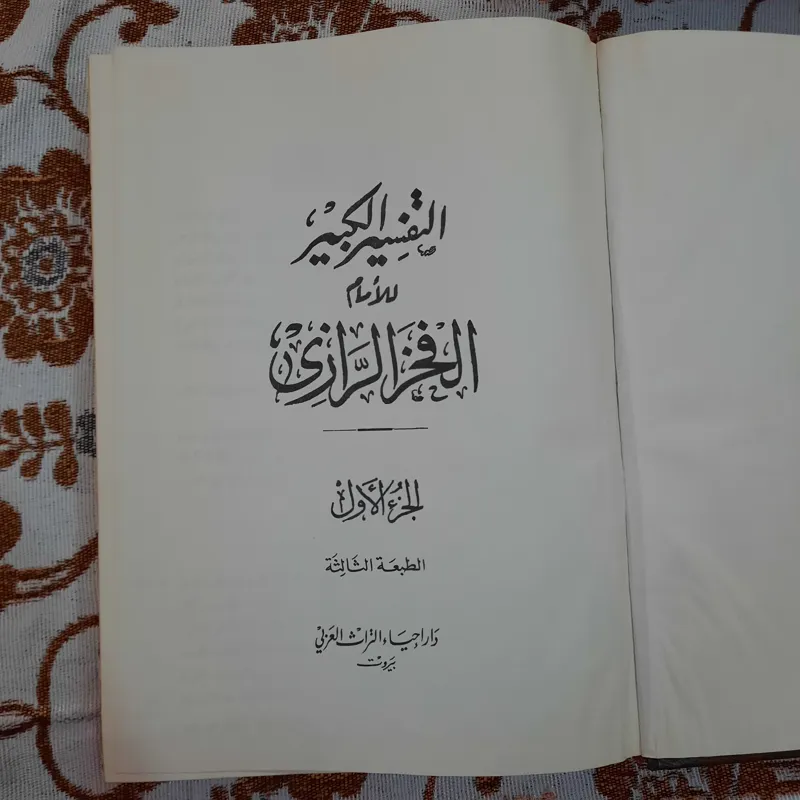 التفسير الكبير
للأمام
الفخر الرازي
الجزء الأول
الطبعة الثالثة
دار إحياء التراث العربي
بيروت